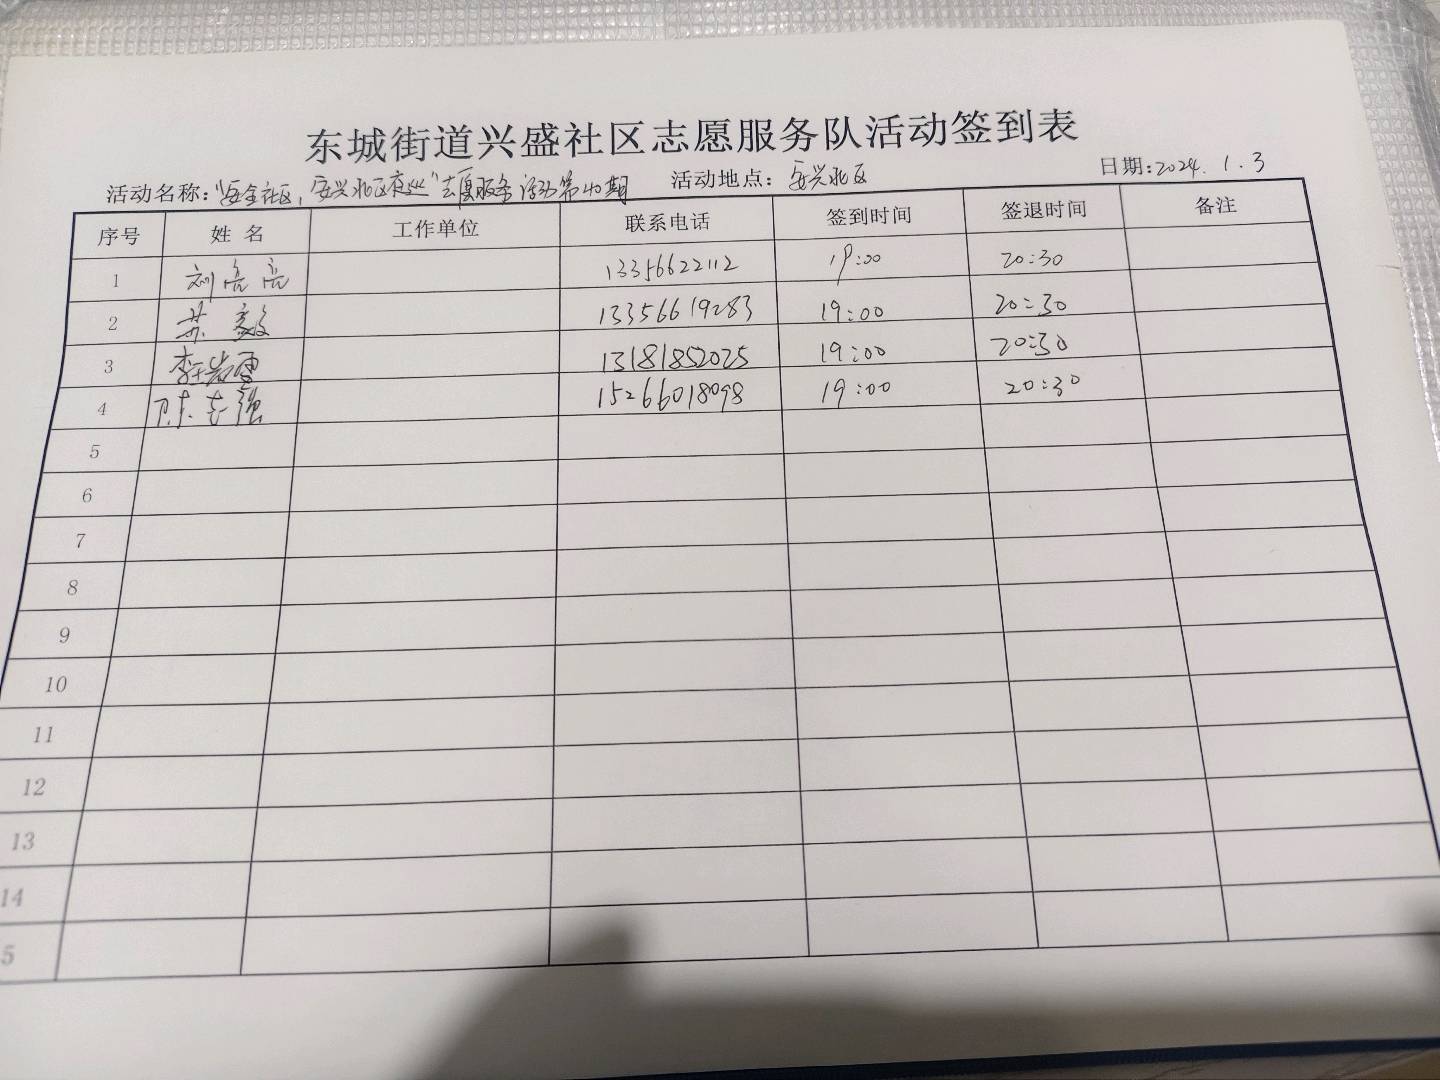 东城街道兴盛社区志愿服务队活动签到表
活动名称:"安全社区,安兴北区夜巡"志愿服务活动第40期 活动地点:安兴北区 日期:2024.1.3
序号 姓名 工作单位 联系电话 签到时间 签退时间 备注
1 刘亮亮 13356622112 19:00 20:30
2 苏毅 13356619283 19:00 20:30
3 李岩 13181852025 19:00 20:30
4 陈志强 15266018098 19:00 20:30
5
6
7
8
9
10
11
12
13
14
5